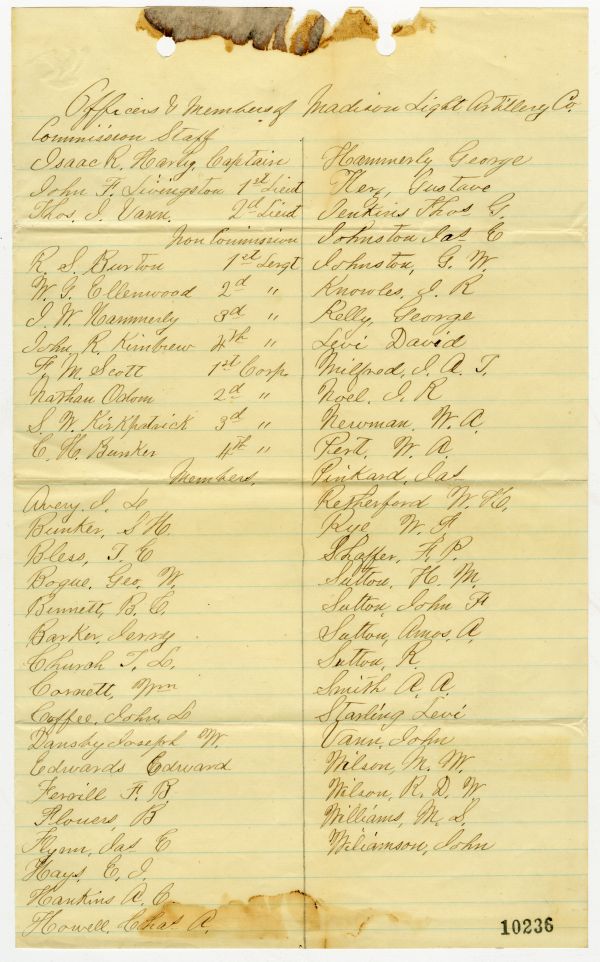 Officers & Members of Madison Light Artillery Co.
Commission Staff
Isaac R. Harty, Captain
John F. Livingston 1st Lieut
Thos. J. Vann, 2d Lieut
Non Comission
R. S. Burton 1st Sergt
W. G. Ellenwood 2d "
J. W. Hammerly 3d "
John R. Kimbrew 4th "
F. M. Scott 1st Corp
Nathan Odom 2d "
S. W. Kirkpatrick 3d "
C. H. Bunker 4th "
Members.
Avery. J. L.
Bunker, S H.
Bless, T. E
Bogue. Geo. W.
Bennett, B. E.
Barker, Jerry
Church T. L.
Cornett, Wm
Coffee, John, L
Dansby Joseph W.
Edwards Edward
Ferrill F. B.
Flowers, B
Flynn, Jas E
Hays. E. J.
Hankins A. C.
Howell, Chas A.
Hammerly George
Hery, Gustave
Jenkins Thos G.
Johnston Jas E
Johnston, G. W.
Knowles, J. R
Kelly, George
Levi David
Milfred, J. A. T.
Noel, J. R
Newman, W. A.
Pert, W. A.
Pinkard, Jas
Retherford W. H.
Rye W. F
Shaffer, F. P.
Sutton, H. M.
Sutton, John F
Sutton, Amos, A.
Sutton, R.
Smith A. A.
Starling Levi
Vann, John
Wilson, M. W.
Wilson, R. D. W
Williams, M. S.
Wiliamson, John
10236